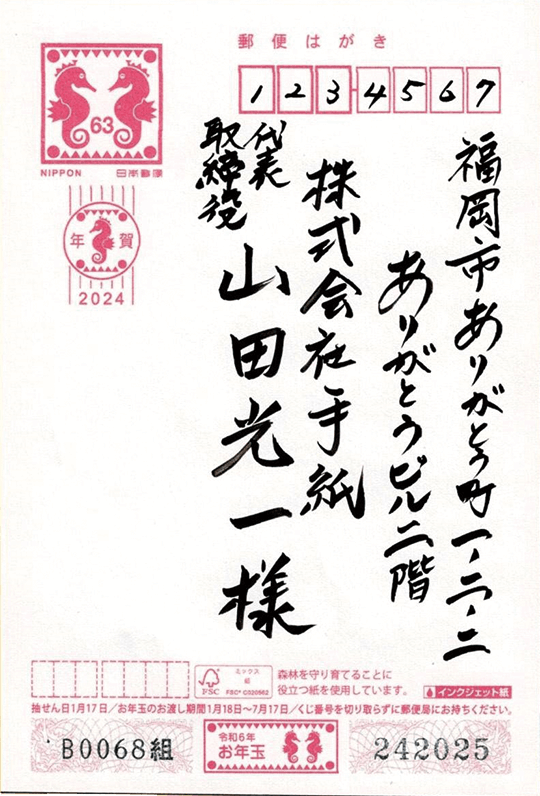 郵便はがき
1234567
63
NIPPON 日本郵便
年賀
2024
福岡市ありがとう町一-二-二
ありがとうビル二階
株式会社手紙
代表
取締役
山田光一様
ミックス
紙
FSC
FSC® C020562
森林を守り育てることに
役立つ紙を使用しています。
インクジェット紙
抽せん日1月17日/お年玉のお渡し期間1月18日〜7月17日/くじ番号を切り取らずに郵便局にお持ちください。
B0068組
令和6年
お年玉
242025